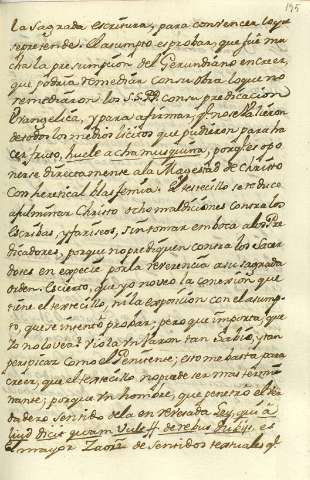 175
la Sagrada escritura, para convencer lo que
se pretende. El asumpto es probar, que fuè mu-
cha la presumpcion del Gerundiano en creer,
que podria remediar con su obra lo que no
remediaron los S.S. PP. con su predicacion
Evangelica, y para afirmar, q.e no se valieron
de todos los medios licitos que pudieron para ha
cer fruto, huele a chamusquina, porq.e es opo
nerse directamente a la Magestad de Christo
con heretical blasfemia. El textecillo se reduce
a fulminar Christo ocho maldiciones contra los
Escribas, y fariseos, sin tomar en boca a los Pre
dicadores, porque no prediquen contra los Sacer
dotes en especie por la reverencia a su sagrada
orden. Es cierto, que yo no veo la conexion que
tiene el textecillo, ni la exposicion con el asump-
to, que se intentò probar; pero que importa, que
Yo no lo vea? Violo un Varon tan Sabio, y tan
perspicaz como el Penitente; esto me basta para
creer, que el textecillo no puede ser mas termi
nante; porque un hombre, que penetrò el ver
dadero sentido de la enrevesada Ley, qui a
liud dicit quam vult ff. de rebus dubijs, es
el mayor Zaorì de sentidos textuales q.e